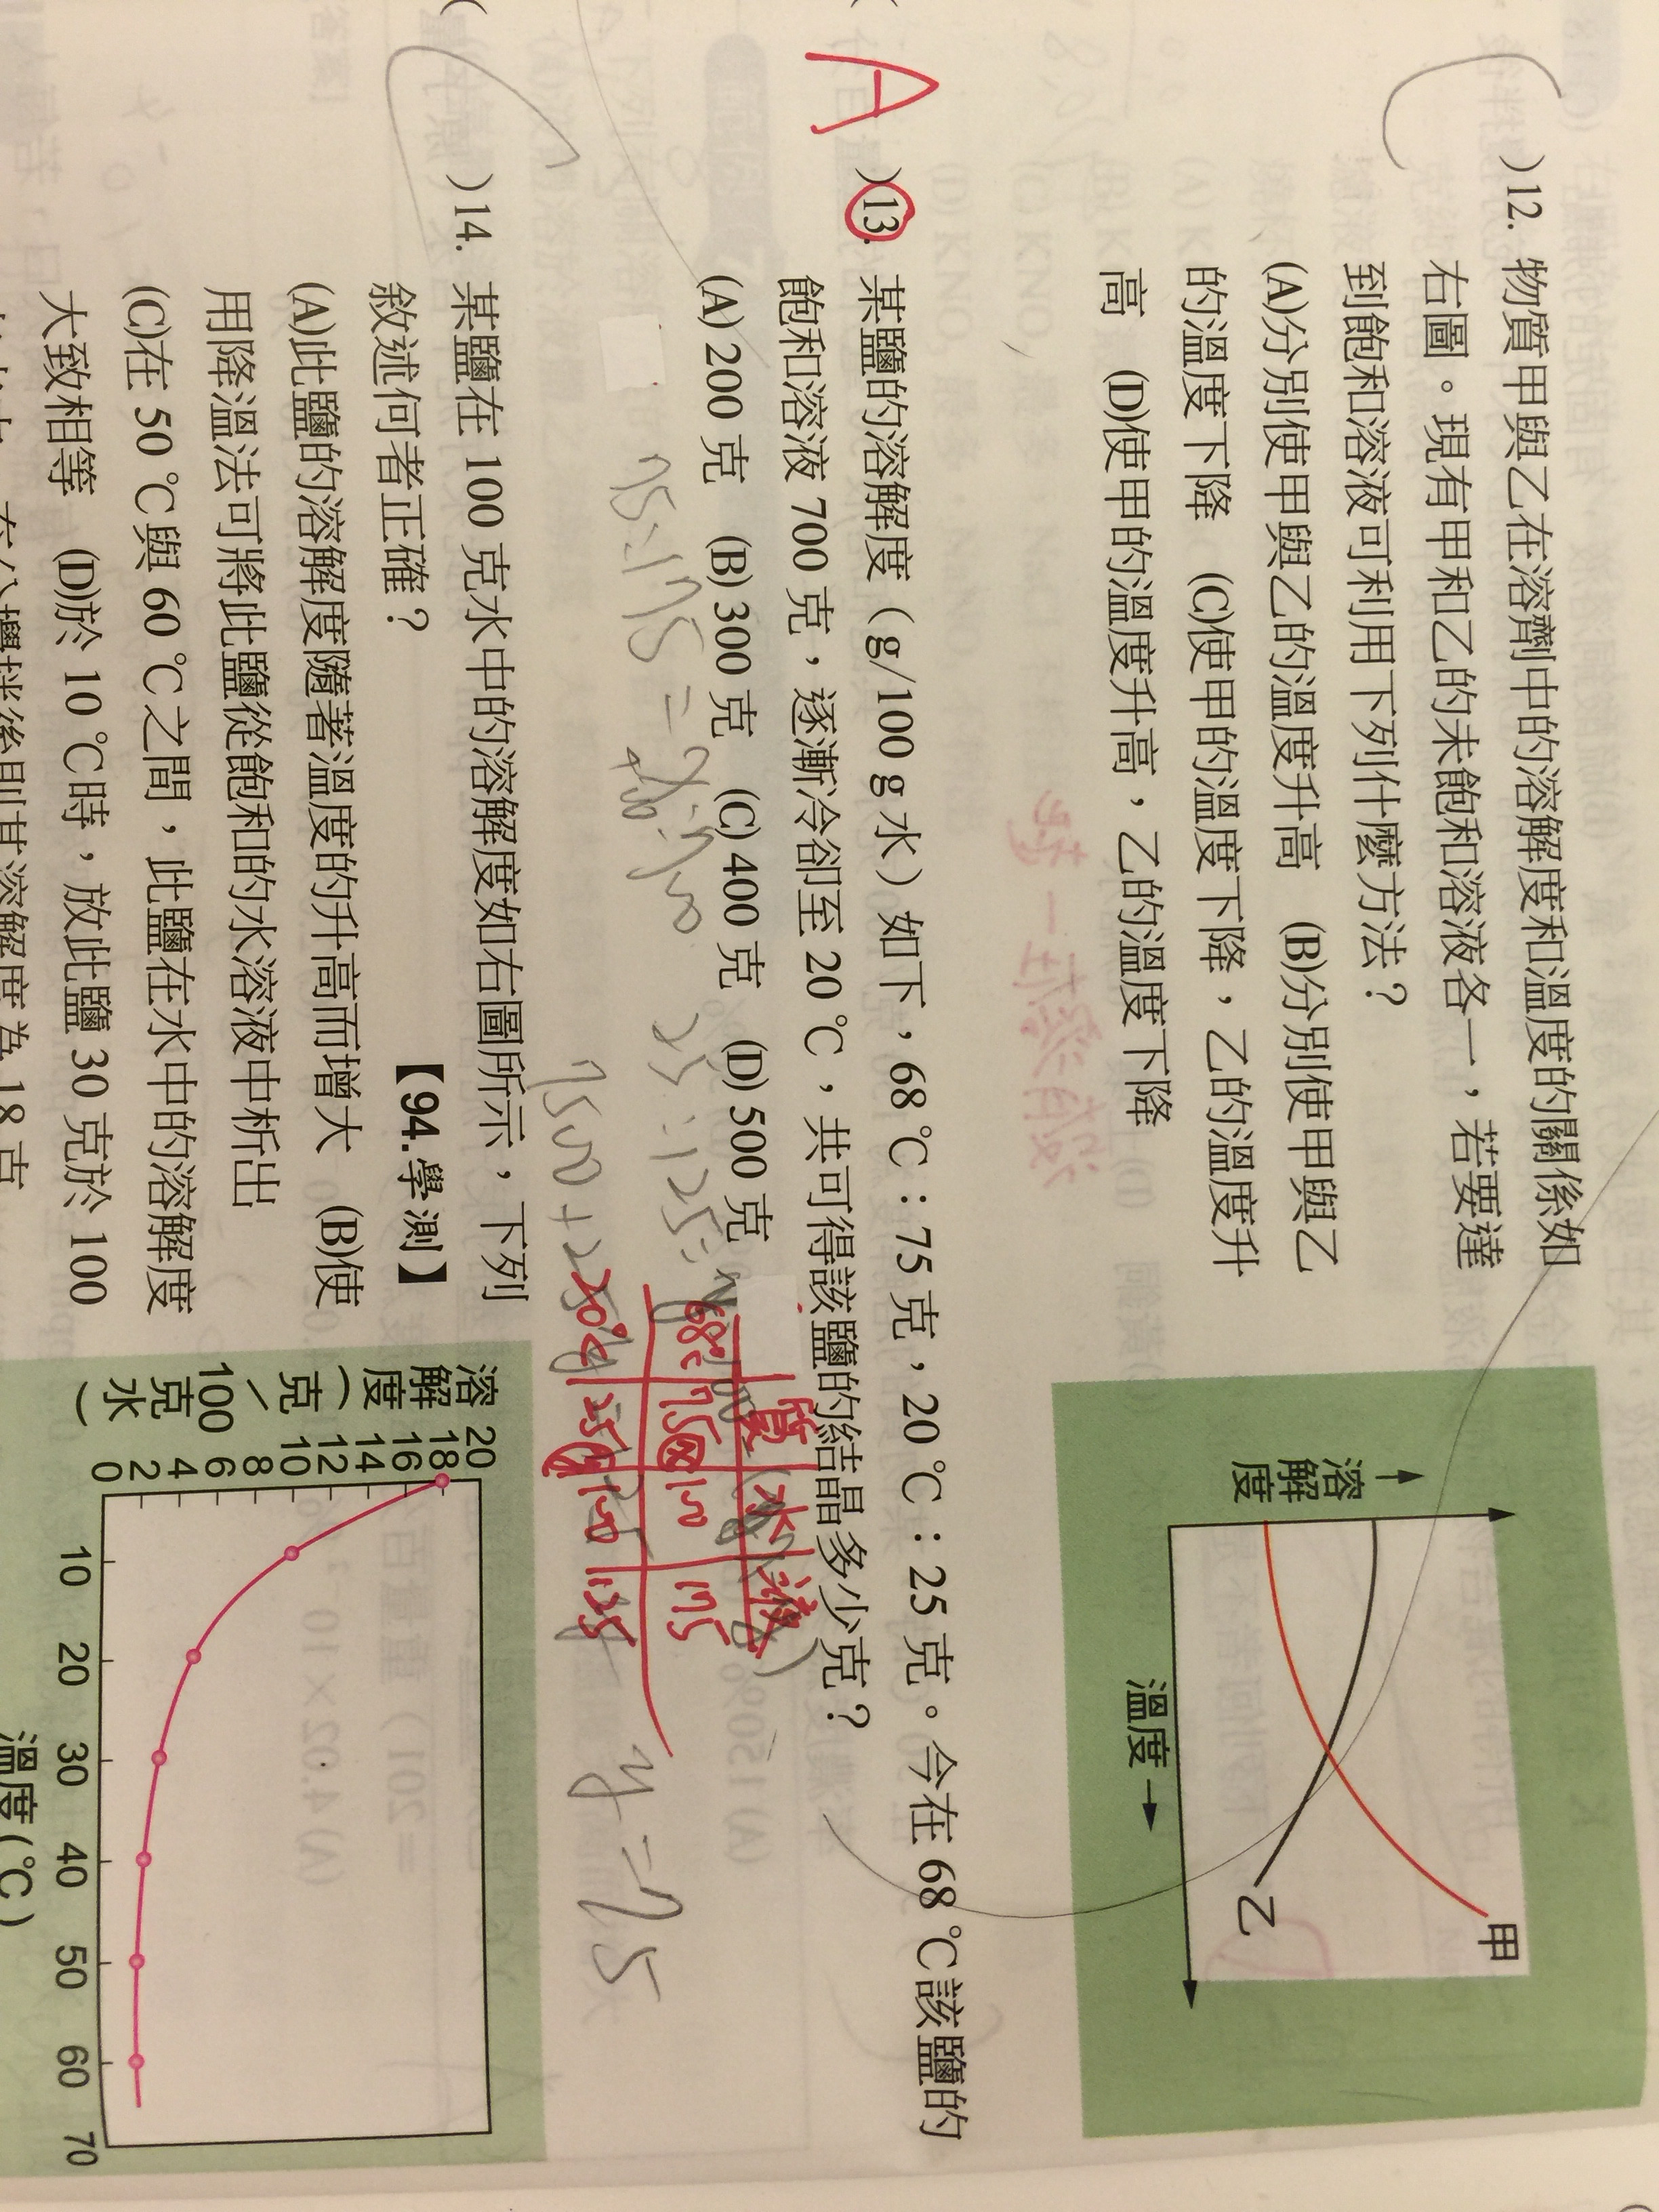 )12. 物質甲與乙在溶劑中的溶解度和溫度的關係如
右圖。現有甲和乙的未飽和溶液各一，若要達
到飽和溶液可利用下列什麼方法？
(A)分別使甲與乙的溫度升高 (B)分別使甲與乙
的溫度下降 (C)使甲的溫度下降，乙的溫度升
高 (D)使甲的溫度升高，乙的溫度下降
溶解度
溫度
甲
乙
A )13. 某鹽的溶解度（g/100 g 水）如下，68 ℃：75 克，20 ℃：25 克。今在 68 ℃該鹽的
飽和溶液 700 克，逐漸冷卻至 20 ℃，共可得該鹽的結晶多少克？
(A) 200 克 (B) 300 克 (C) 400 克 (D) 500 克
質 水 液
68℃ 75 100 175
20℃ 25 100 125
75:175=
y=75
)14. 某鹽在 100 克水中的溶解度如右圖所示，下列
敘述何者正確？ 【94.學測】
(A)此鹽的溶解度隨著溫度的升高而增大 (B)使
用降溫法可將此鹽從飽和的水溶液中析出
(C)在 50 ℃與 60 ℃之間，此鹽在水中的溶解度
大致相等 (D)於 10 ℃時，放此鹽 30 克於 100
攪拌後則其溶解度為 18 克
溶解度（克／100克水）
20
18
16
14
12
10
8
6
4
2
0
10 20 30 40 50 60 70
溫度(℃)